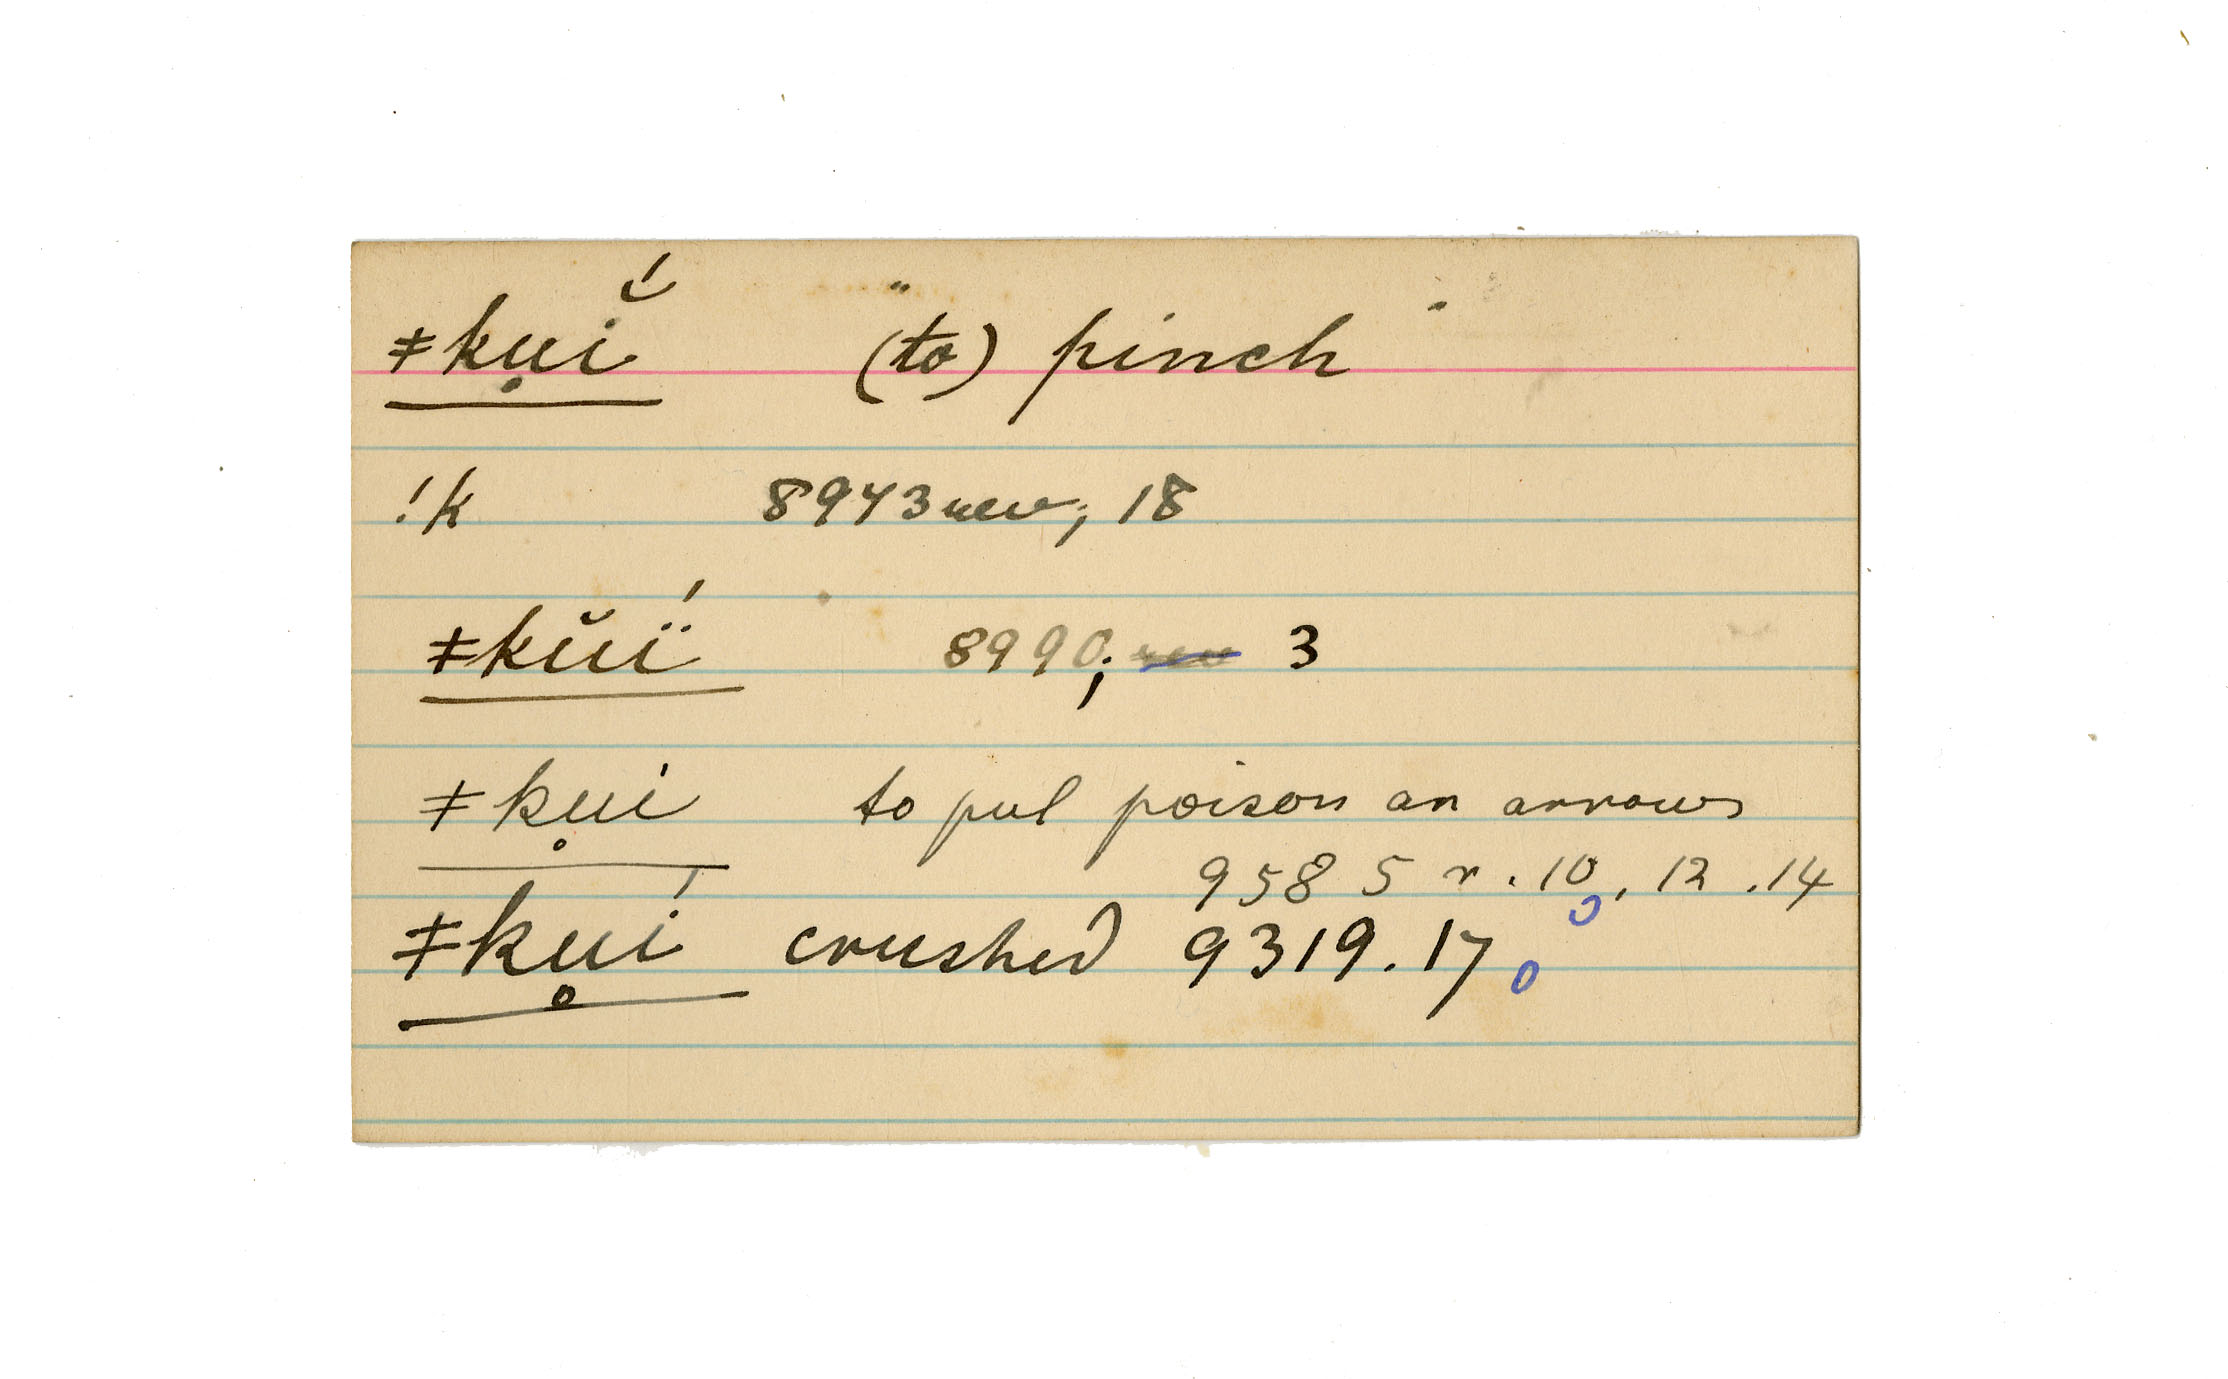 ǂkụĭ́ (to) pinch
!k 8943 rev; 18
ǂkŭḯ 8990; rev 3
ǂku̥í to put poison on arrows
9585 r. 10, 12. 14
ǂku̥í crushed 9319. 17